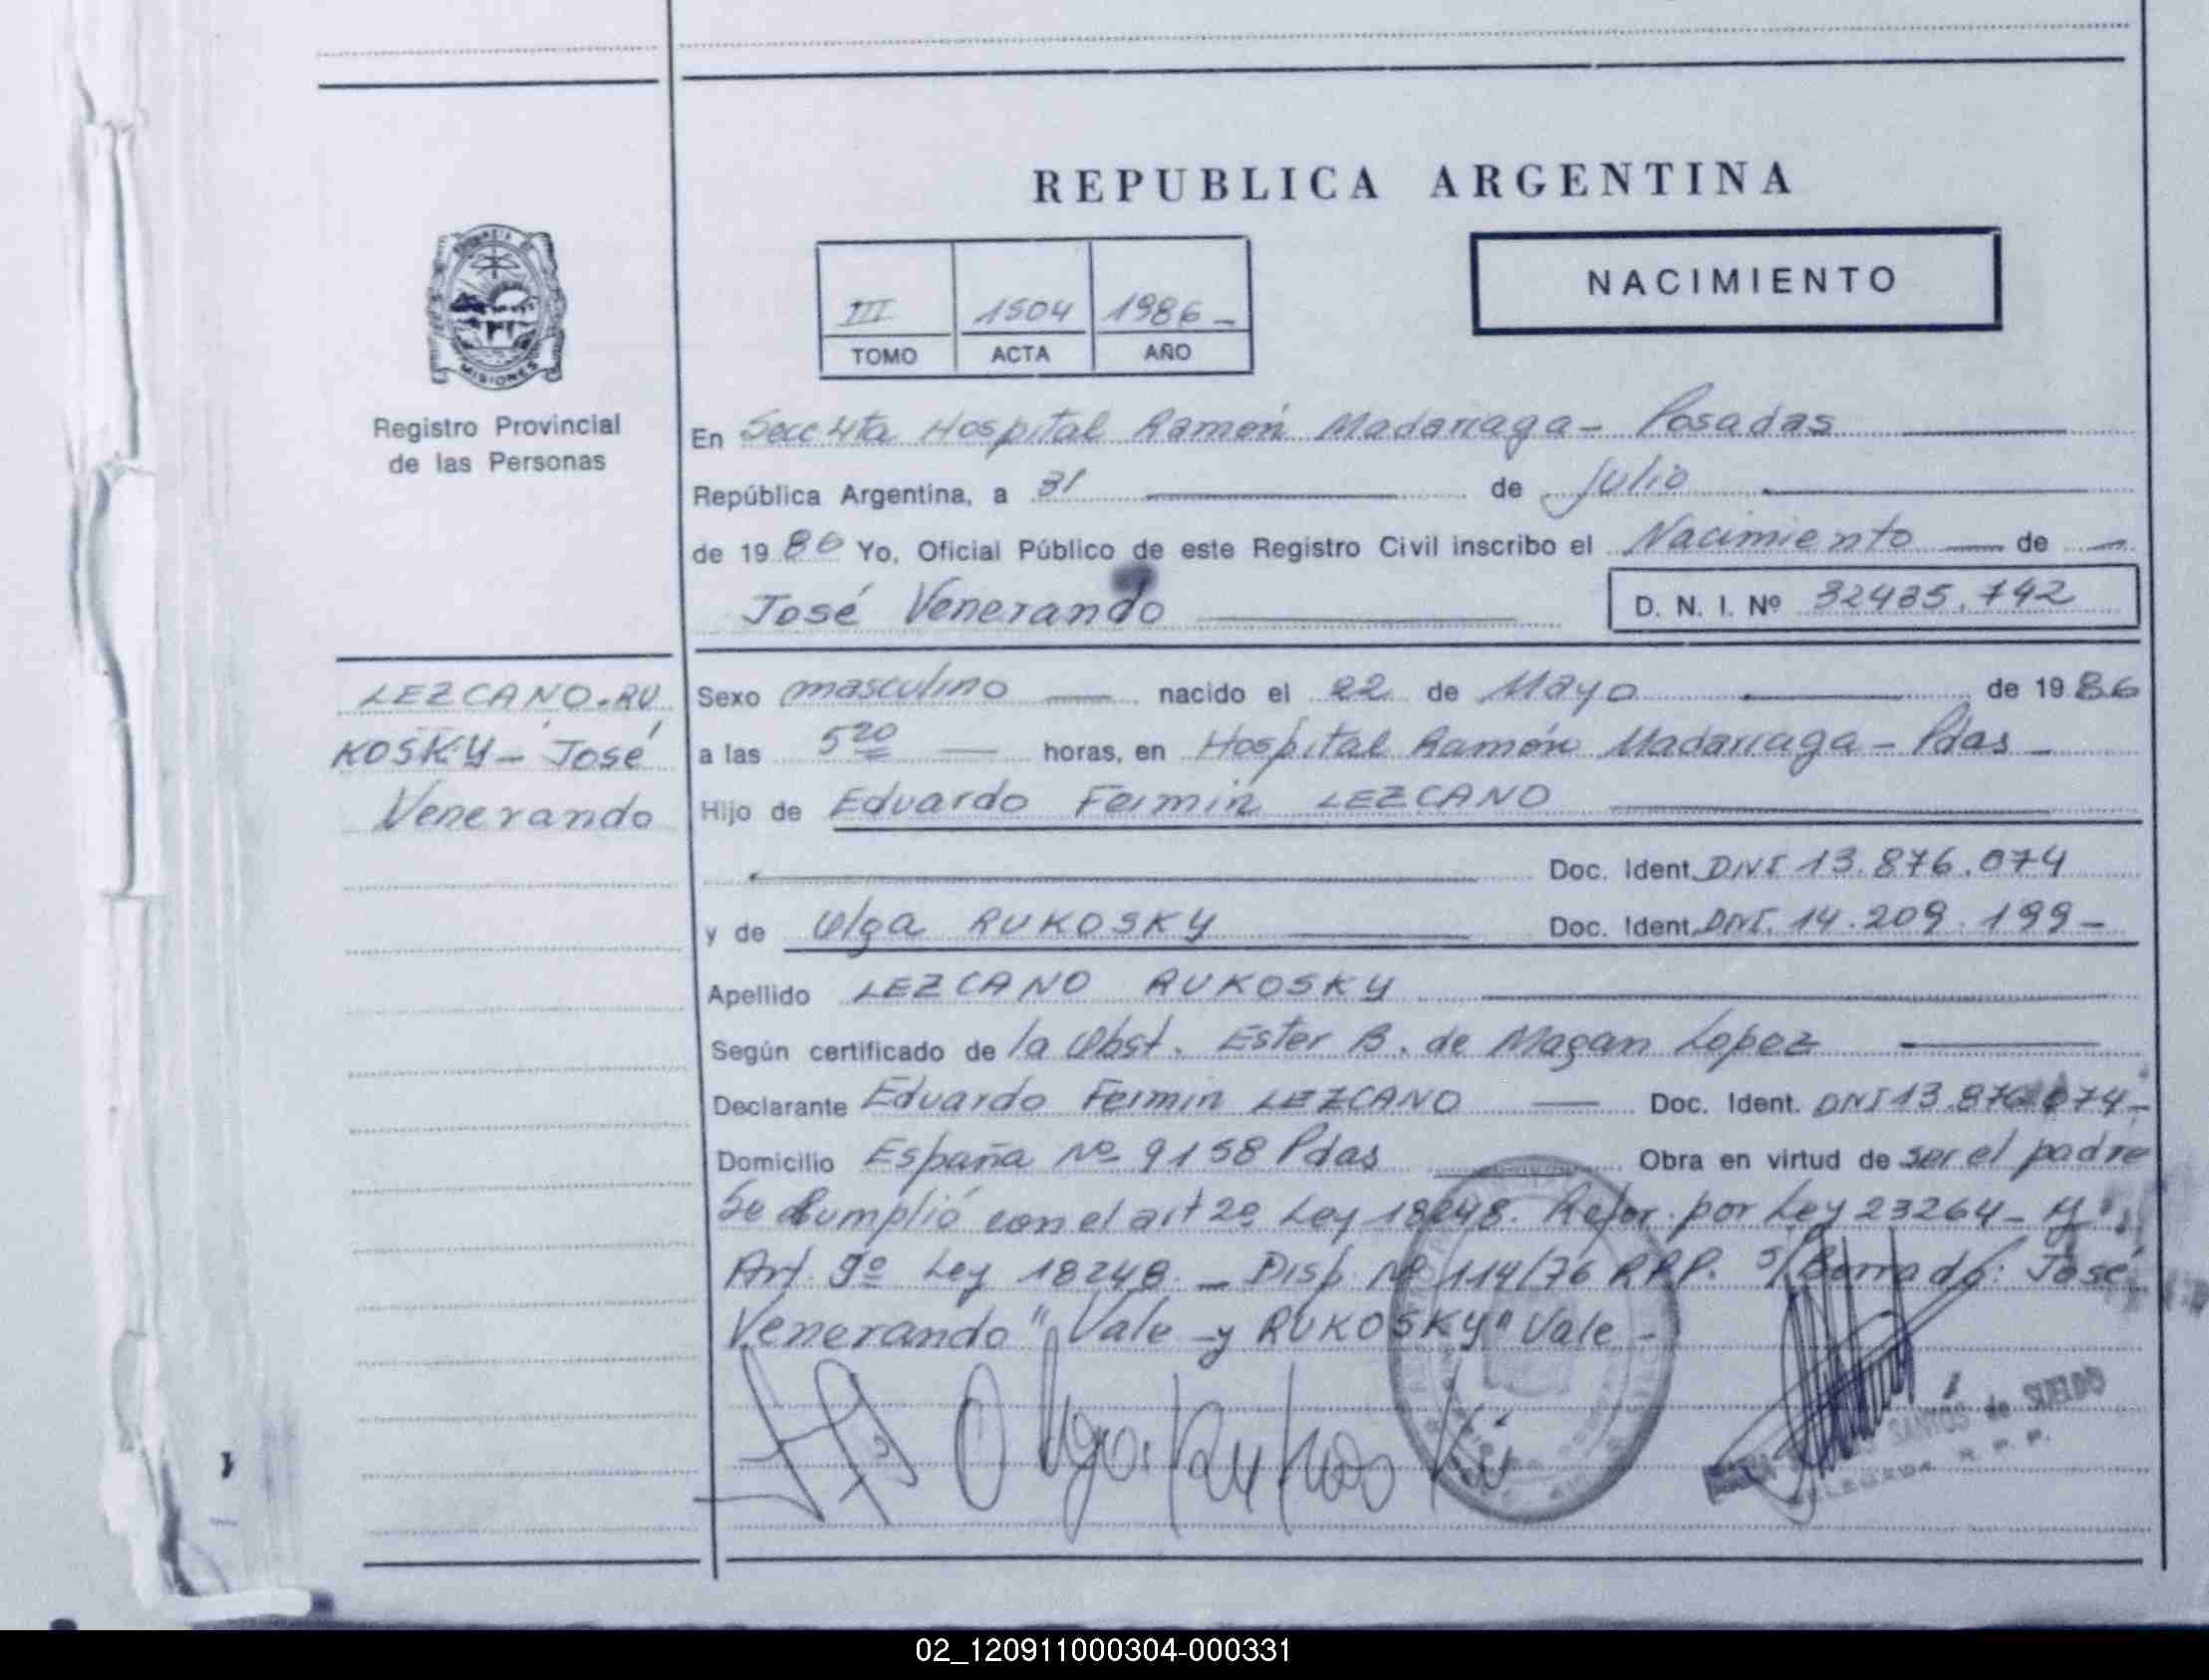 REPUBLICA ARGENTINA
NACIMIENTO
III 1504 1986 -
TOMO ACTA AÑO
MISIONES
Registro Provincial
de las Personas
En Secc 4ta Hospital Ramón Madariaga - Posadas
República Argentina, a 31 de Julio
de 19 86 Yo, Oficial Público de este Registro Civil inscribo el Nacimiento de
José Venerando
D. N. I. Nº
LEZCANO-RU
KOSKY - José
Venerando
Sexo masculino nacido el 22 de Mayo de 19 86
a las 5 20 horas, en Hospital Ramón Madariaga - Pdas -
Hijo de Eduardo Fermin LEZCANO
Doc. Ident. DNI 13.876.074
y de Olga RUKOSKY Doc. Ident. DNI. 14.209.199 -
Apellido LEZCANO RUKOSKY
Según certificado de la Obst. Ester B. de Magan Lopez
Declarante Eduardo Fermin LEZCANO Doc. Ident. DNI 13.876.074 -
Domicilio España Nº 9158 Pdas Obra en virtud de ser el padre
Se Cumplió con el art 2º Ley 18248. Refor. por Ley 23264 - y
Art. 9º Ley 18248. - Disp. Nº 114/76 RPP. S/Borrado: José
Venerando" Vale y RUKOSKY" Vale -
Olga Rukoski
SANTOS de SUELDO
R. P. P.
02_120911000304-000331